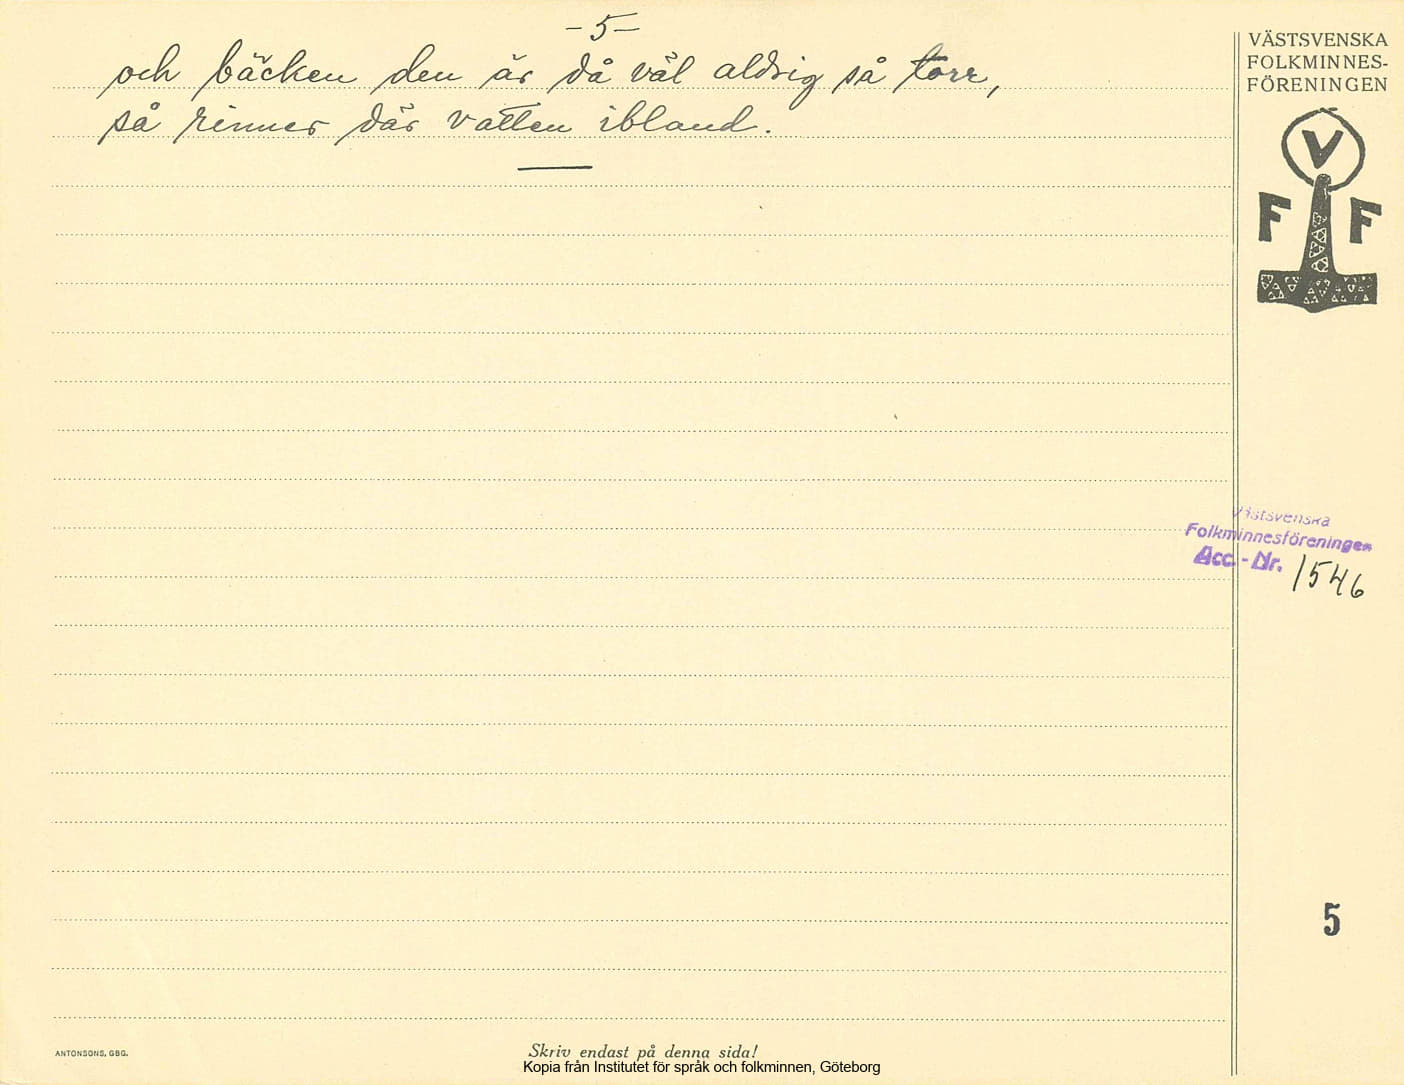 -5-
och bäcken den är då väl aldrig så torr,
så rinner där vatten ibland.
VÄSTSVENSKA
FOLKMINNES-
FÖRENINGEN
V
F F
Västsvenska
Folkminnesföreningen
Acc.-Nr. 1546
5
ANTONSONS, GBG.
Skriv endast på denna sida!
Kopia från Institutet för språk och folkminnen, Göteborg